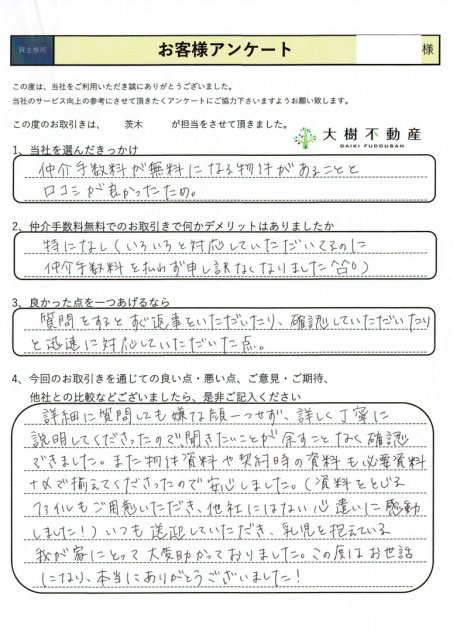 買主様用
お客様アンケート
様
この度は、当社をご利用いただき誠にありがとうございました。
当社のサービス向上の参考にさせて頂きたくアンケートにご協力下さいますようお願い致します。
この度のお取引きは、 茨木 が担当をさせて頂きました。
大樹不動産
DAIKI FUDOUSAN
1、当社を選んだきっかけ
仲介手数料が無料になる物件があることと
口コミが良かったため。
2、仲介手数料無料でのお取引きで何かデメリットはありましたか
特になし(いろいろと対応していただいてるのに
仲介手数料を払わず申し訳なくなりました
3、良かった点を一つあげるなら
質問をするとすぐ返事をいただいたり、確認していただいたり
と迅速に対応していただいた点。
4、今回のお取引きを通じての良い点・悪い点、ご意見・ご期待、
他社との比較などございましたら、是非ご記入ください
詳細に質問しても嫌な顔一つせず、詳しく丁寧に
説明してくださったので、聞きたいことが余すことなく確認
できました。また物件資料や契約時の資料も必要資料
で揃えてくださったので安心しました。(資料をとじる
ファイルもご用意いただき、他社にはない心遣いに感動
しました!)いつも送迎していただき、乳児を抱えている
我が家にとって大変助かっておりました。この度はお世話
になり、本当にありがとうございました!